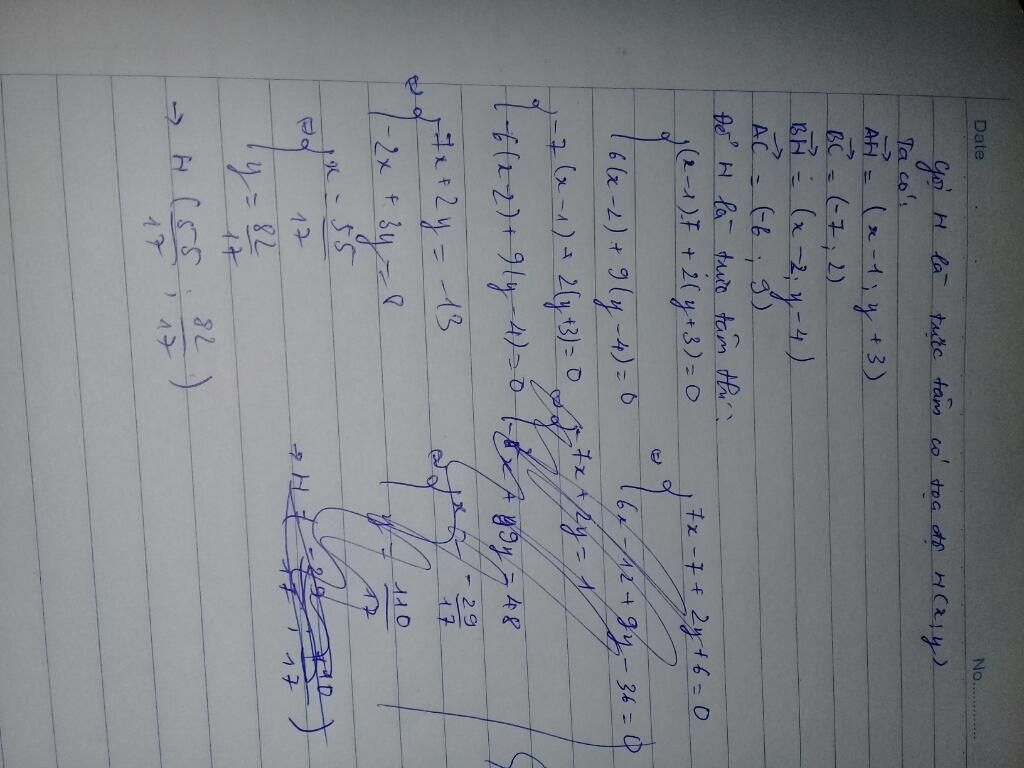 Date No.
Gọi H là trực tâm có tọa độ H(x;y)
Ta có:
AH = (x - 1; y + 3)
BC = (-7; 2)
BH = (x - 2; y - 4)
AC = (-6; 9)
Để H là trực tâm thì:
{ (x - 1).7 + 2(y + 3) = 0
6(x - 2) + 9(y - 4) = 0
⇔ { 7x - 7 + 2y + 6 = 0
6x - 12 + 9y - 36 = 0
{ -7(x - 1) + 2(y + 3) = 0
-6(x - 2) + 9(y - 4) = 0
⇔ { -7x + 2y = -13
-2x + 3y = 8
⇔ { x = 55/17
y = 82/17
→ H (55/17; 82/17)
⇔ { 7x + 2y = 1
+ 9y = 48
⇔ { x = -29/17
y = 110/17
→ H